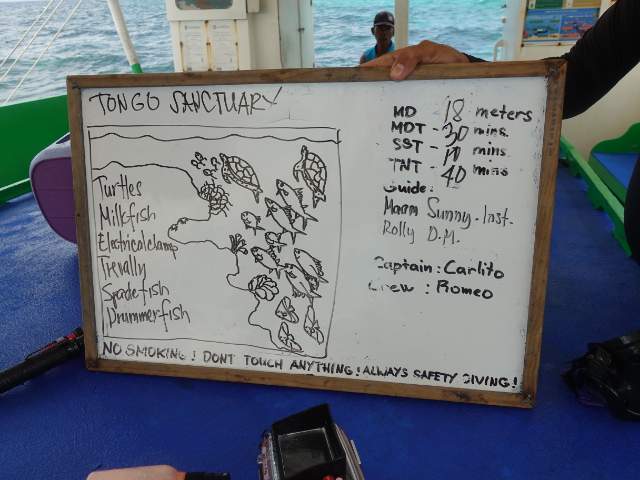 TONGO SANCTUARY
Turtles
Milkfish
Electrical clamp
Trevally
Spadefish
Drummerfish
MD - 18 meters
MDT - 30 mins.
SST - 10 mins
TNT - 40 mins
Guide:
Maam Sunny. Inst.
Rolly D.M.
Captain : Carlito
Crew : Romeo
NO SMOKING! DONT TOUCH ANYTHING! ALWAYS SAFETY DIVING!